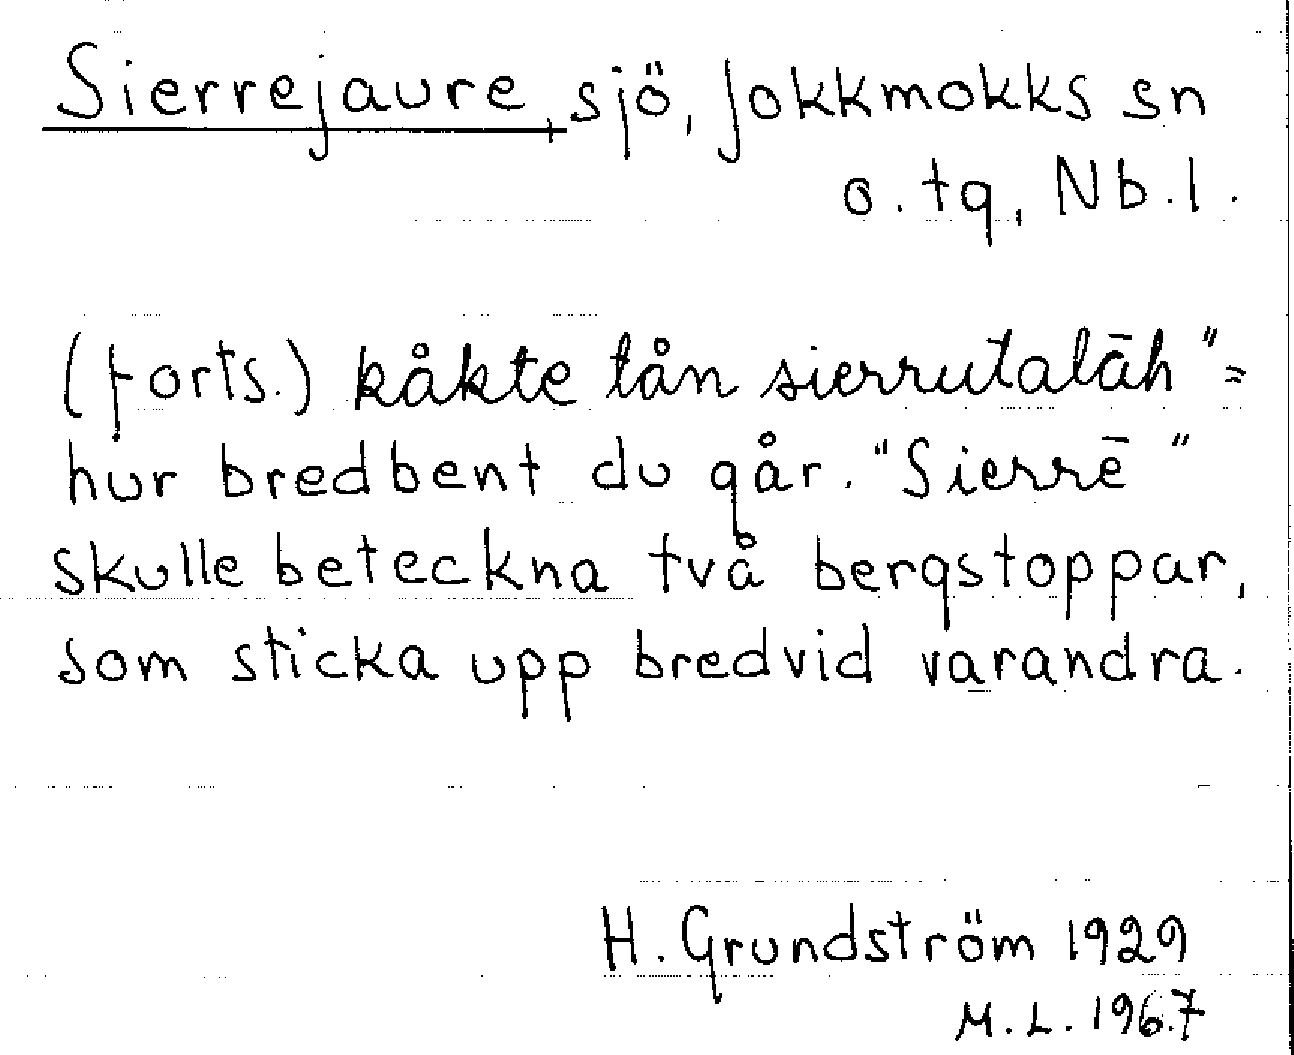 Sierrejaure, sjö, Jokkmokks sn
o. tg, Nb.l.
(forts.) kåkte tån sierrutalāh" =
hur bredbent du går. "Sierrē"
skulle beteckna två bergstoppar,
som sticka upp bredvid varandra.
H. Grundström 1929
M.L. 1967